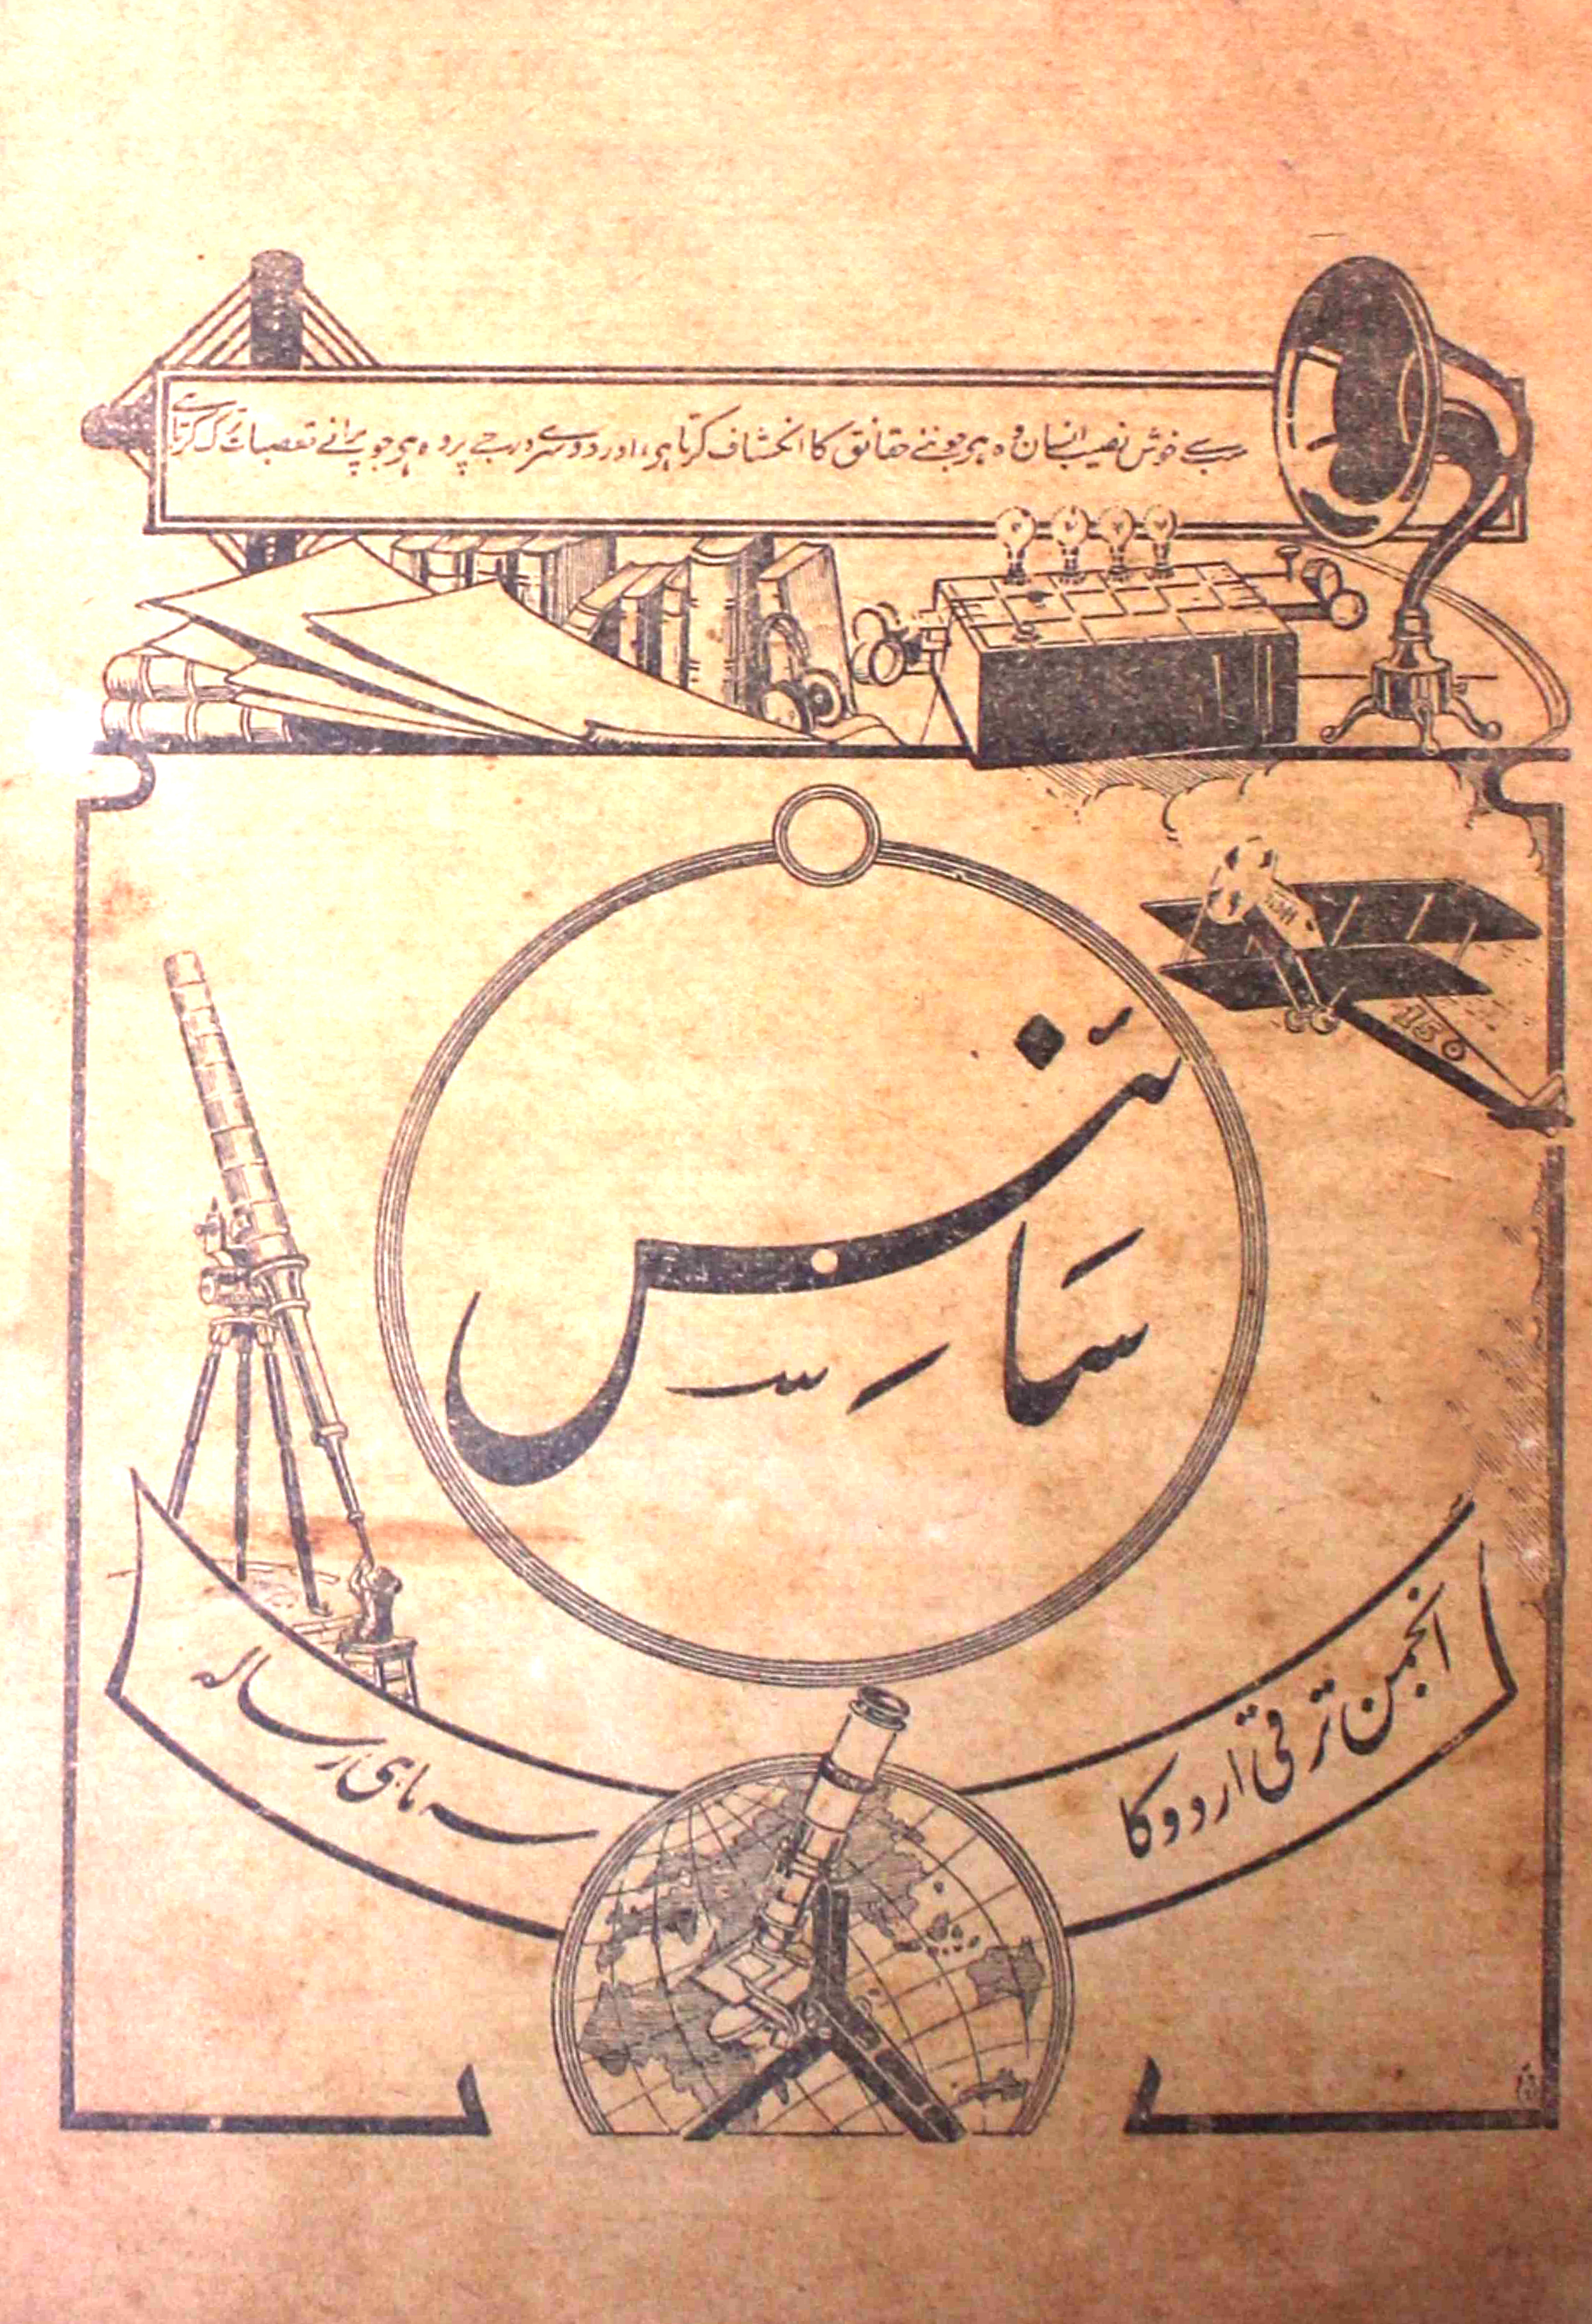 سب سے خوش نصیب انسان وہ ہی جو نئے حقائق کا انکشاف کرتا ہی، اور دوسرے درجے پر وہ ہی جو پرانے تعصبات ترک کرتا ہے
150
سائنس
انجمن ترقی اردو کا
سہ ماہی رسالہ